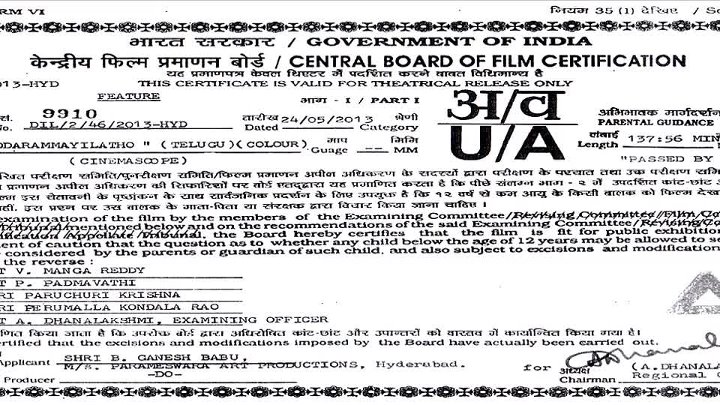 RM VI नियम 35 (1) देखिए / Sc
भारत सरकार / GOVERNMENT OF INDIA
केन्द्रीय फिल्म प्रमाणन बोर्ड / CENTRAL BOARD OF FILM CERTIFICATION
यह प्रमाणपत्र केवल थिएटर में प्रदर्शित करने बाबत विधिमान्य है
13-HYD THIS CERTIFICATE IS VALID FOR THEATRICAL RELEASE ONLY
FEATURE भाग - I / PART I
सं. 9910 तारीख 24/05/2013 श्रेणी अ/व अभिभावक मार्गदर्शन
No. DIL/2/46/2013-HYD Dated Category U/A PARENTAL GUIDANCE
लंबाई 137:56 MIN
Length
DDARAMMAYILATHO " (TELUGU)(COLOUR) माप -- मिमि
Guage -- MM
(CINEMASCOPE) "PASSED BY
examination of the film by the members of the Examining Committee/Revising Committee/Film Ce
mentioned below and on the recommendations of the said Examining Committee/Revising Co
Appellate Tribunal, the Board hereby certifies that the film is fit for public exhibition
ent of caution that the question as to whether any child below the age of 12 years may be allowed to se
considered by the parents or guardian of such child, and also subject to excisions and modification
the reverse :
T V. MANGA REDDY
T P. PADMAVATHI
RI PARUCHURI KRISHNA
RI PERUMALLA KONDALA RAO
T A. DHANALAKSHMI, EXAMINING OFFICER
ertified that the excisions and modifications imposed by the Board have actually been carried out.
SHRI B. GANESH BABU,
Applicant M/S. PARAMESWARA ART PRODUCTIONS, Hyderabad. for अध्यक्ष (A.DHANALA
Producer -DO- Chairman Regional O